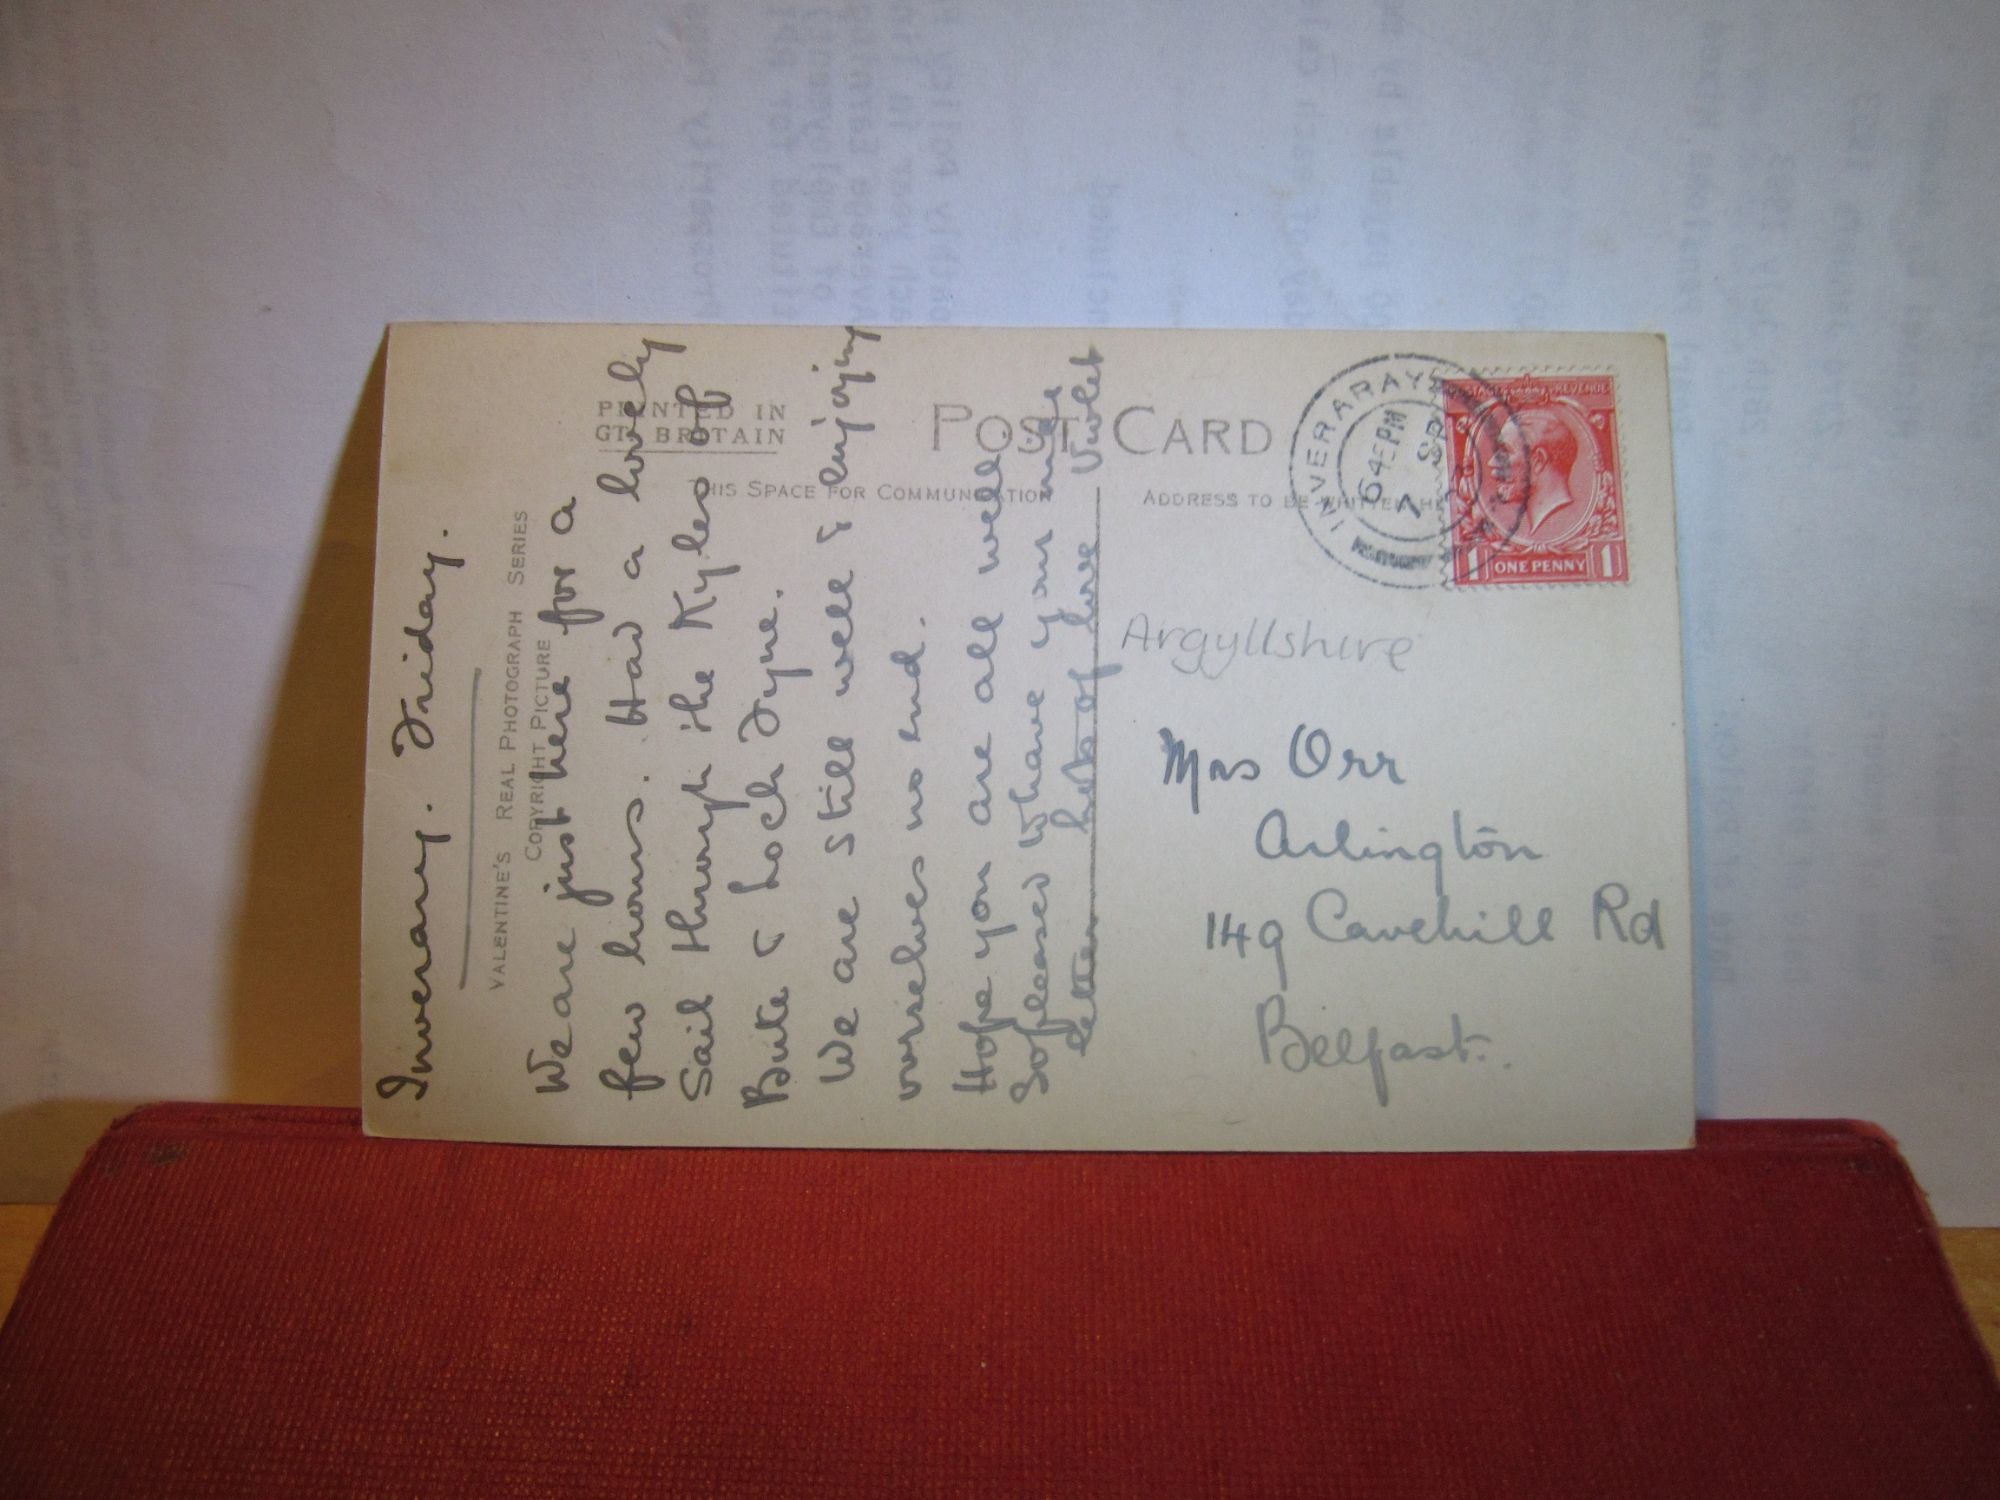 Inveraray. Friday.
We are just here for a
few hours. Had a lovely
Sail through the Kyles of
Bute & Loch Fyne.
We are still well & enjoying
ourselves no end.
Hope you are all well.
So pleased to have your nice
letter lots of love Violet
VALENTINE'S REAL PHOTOGRAPH SERIES
COPYRIGHT PICTURE
PRINTED IN
GT. BRITAIN
POST CARD
THIS SPACE FOR COMMUNICATION
ADDRESS TO BE WRITTEN
INVERARAY
645PM
7 SP
POSTAGE REVENUE
1 ONE PENNY 1
Argyllshire
Mrs Orr
Arlington
149 Cavehill Rd
Belfast.